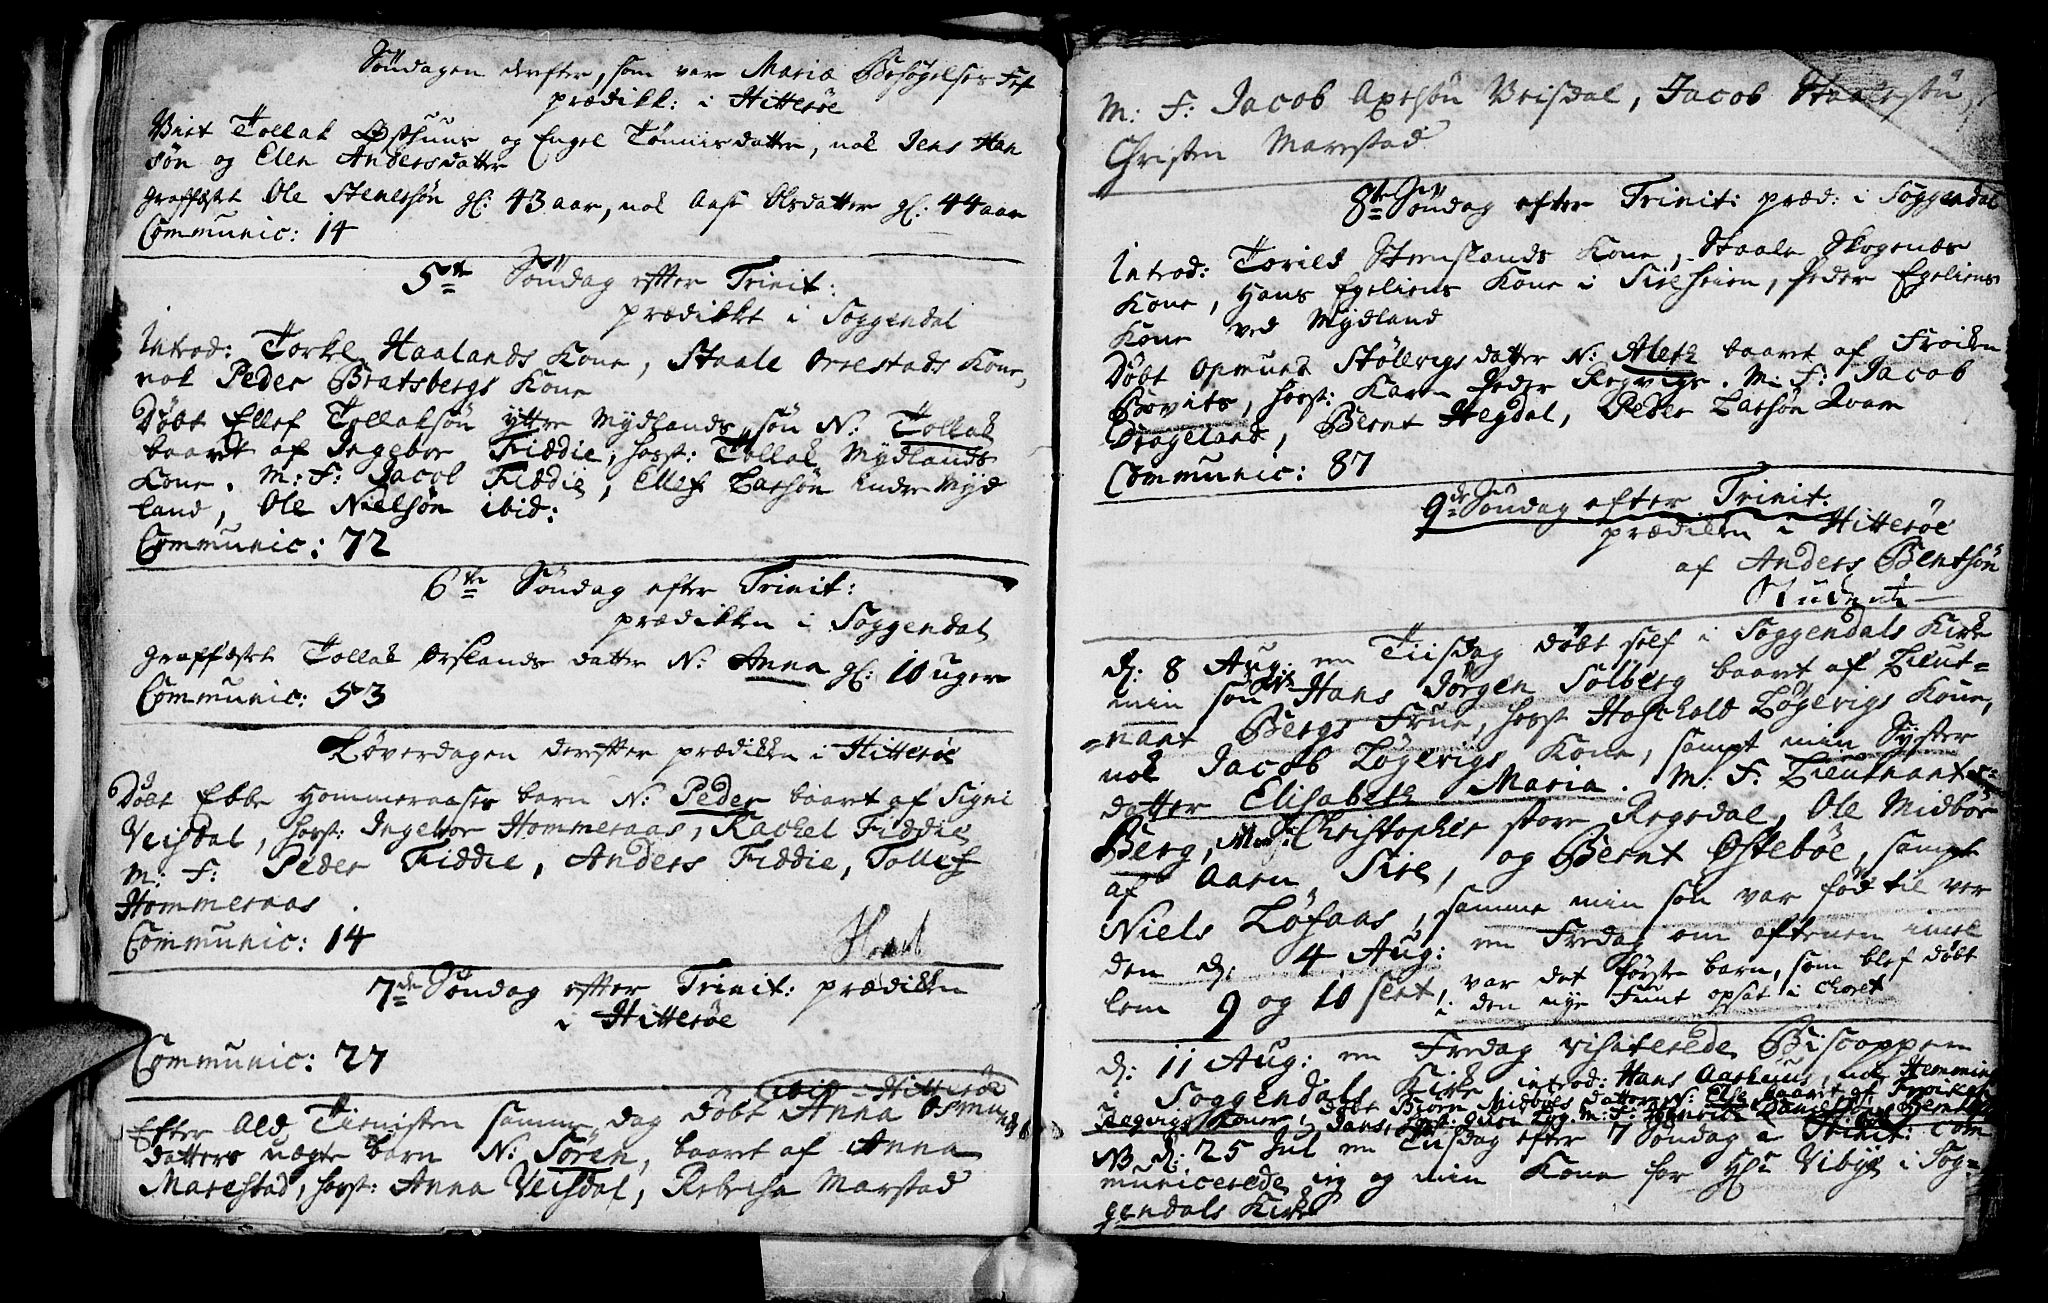 Søndagen derefter, som var Mariæ Besøgelses Fest
prædikk: i Hitterøe
Viet Tollak Østhuus og Engel Tønnisdatter, nok Jens Han
søn og Elen Andersdatter
Graffæstet Ole Stenersøn gl: 43 aar, nok Aase Olsdatter gl: 44 aar
Communic: 14
5te Søndag efter Trinit:
prædikket i Soggendal
Introd: Torkel Haalands Kone, Staale Orrestads Kone,
nok Peder Bratsbergs Kone
Døbt Ellef Tollaksøn yttre Mydlands søn N: Tollak
baaret af Ingebor Fiddie, host: Tollak Mydlands
Kone. M: F: Jacob Fiddie, Ellef Larsøn Indre Myd
land, Ole Nielsøn ibid:
Communic: 72
6te Søndag efter Trinit:
prædikken i Soggendal
Graffæstet Tollak Orslands datter N: Anna gl: 10 uger
Communic: 53
Løverdagen derefter prædikken i Hitterøe
Døbt Ebbe Hommeraases barn N: Peder baaret af Signi
Veisdal, host: Ingebor Hommeraas, Rachel Fiddie
M: F: Peder Fiddie, Anders Fiddie, Tollef
Hommeraas
Communic: 14
7de Søndag efter Trinit: prædikken
i Hitterøe
Communic: 27
ibid Hitterøe
Efter Ald Tienisten samme dag døbt Anna Osmunds
datters uægte barn N: Søren, baaret af Anna
Marestad, host: Anna Veisdal, Rebecha Marstad
M: F: Jacob Axelsøn Veisdal, Jacob Staalesøn
Christen Marestad
8te Søndag efter Trinit: præd: i Soggendal
Introd: Torild Stenslands Kone, Staale Skogenæs
Kone, Hans Egeliens Kone i Sireheien, Peder Egeliens
Kone ved Mydland
Døbt Opmund Støllevigs datter N: Aleth baaret af Froiken
Bovits, host: Karen Peder Regvigs. M: F: Jacob
Drageland, Bernt Hegdal, Peder Larsøn Qvam
Communic: 87
9de Søndag efter Trinit:
prædiken i Hitterøe
af Anders Bentsøn
Student
d: 8 Aug: en Tiisdag døbt self i Soggendals Kirke
min søn Hans Jørgen Solberg baaret af Lieut-
nant Bergs Frue, host Haschald Løgevigs Kone,
nok Jacob Løgevigs Kone, sampt min Syster
datter Elisabeth Maria. M: F: Lieutnant
Berg, Christopher store Regedal, Ole Midbøe
af Aaen Sire, og Bernt Østebøe, sampt
Niels Løfaas, samme min søn var fød til ver
den d: 4 Aug: en Fredag om aftenen imel
lem 9 og 10 slet, var det første barn, som blef døbt
i den nye Funt opsat i Choret
d: 11 Aug: en Fredag visiterede Biscoppen
i Soggendals Kirke, introd: Hans Aashuus, nok Hemming
Regvigs Koner, døbt Biørn Midbøes datter N: Else baaret af
NB d: 25 Jul en Tiisdag efter 7 Søndag a Trinit: com
municerede ieg og min Kone for Hr: Vibye i Sog-
gendals Kirke